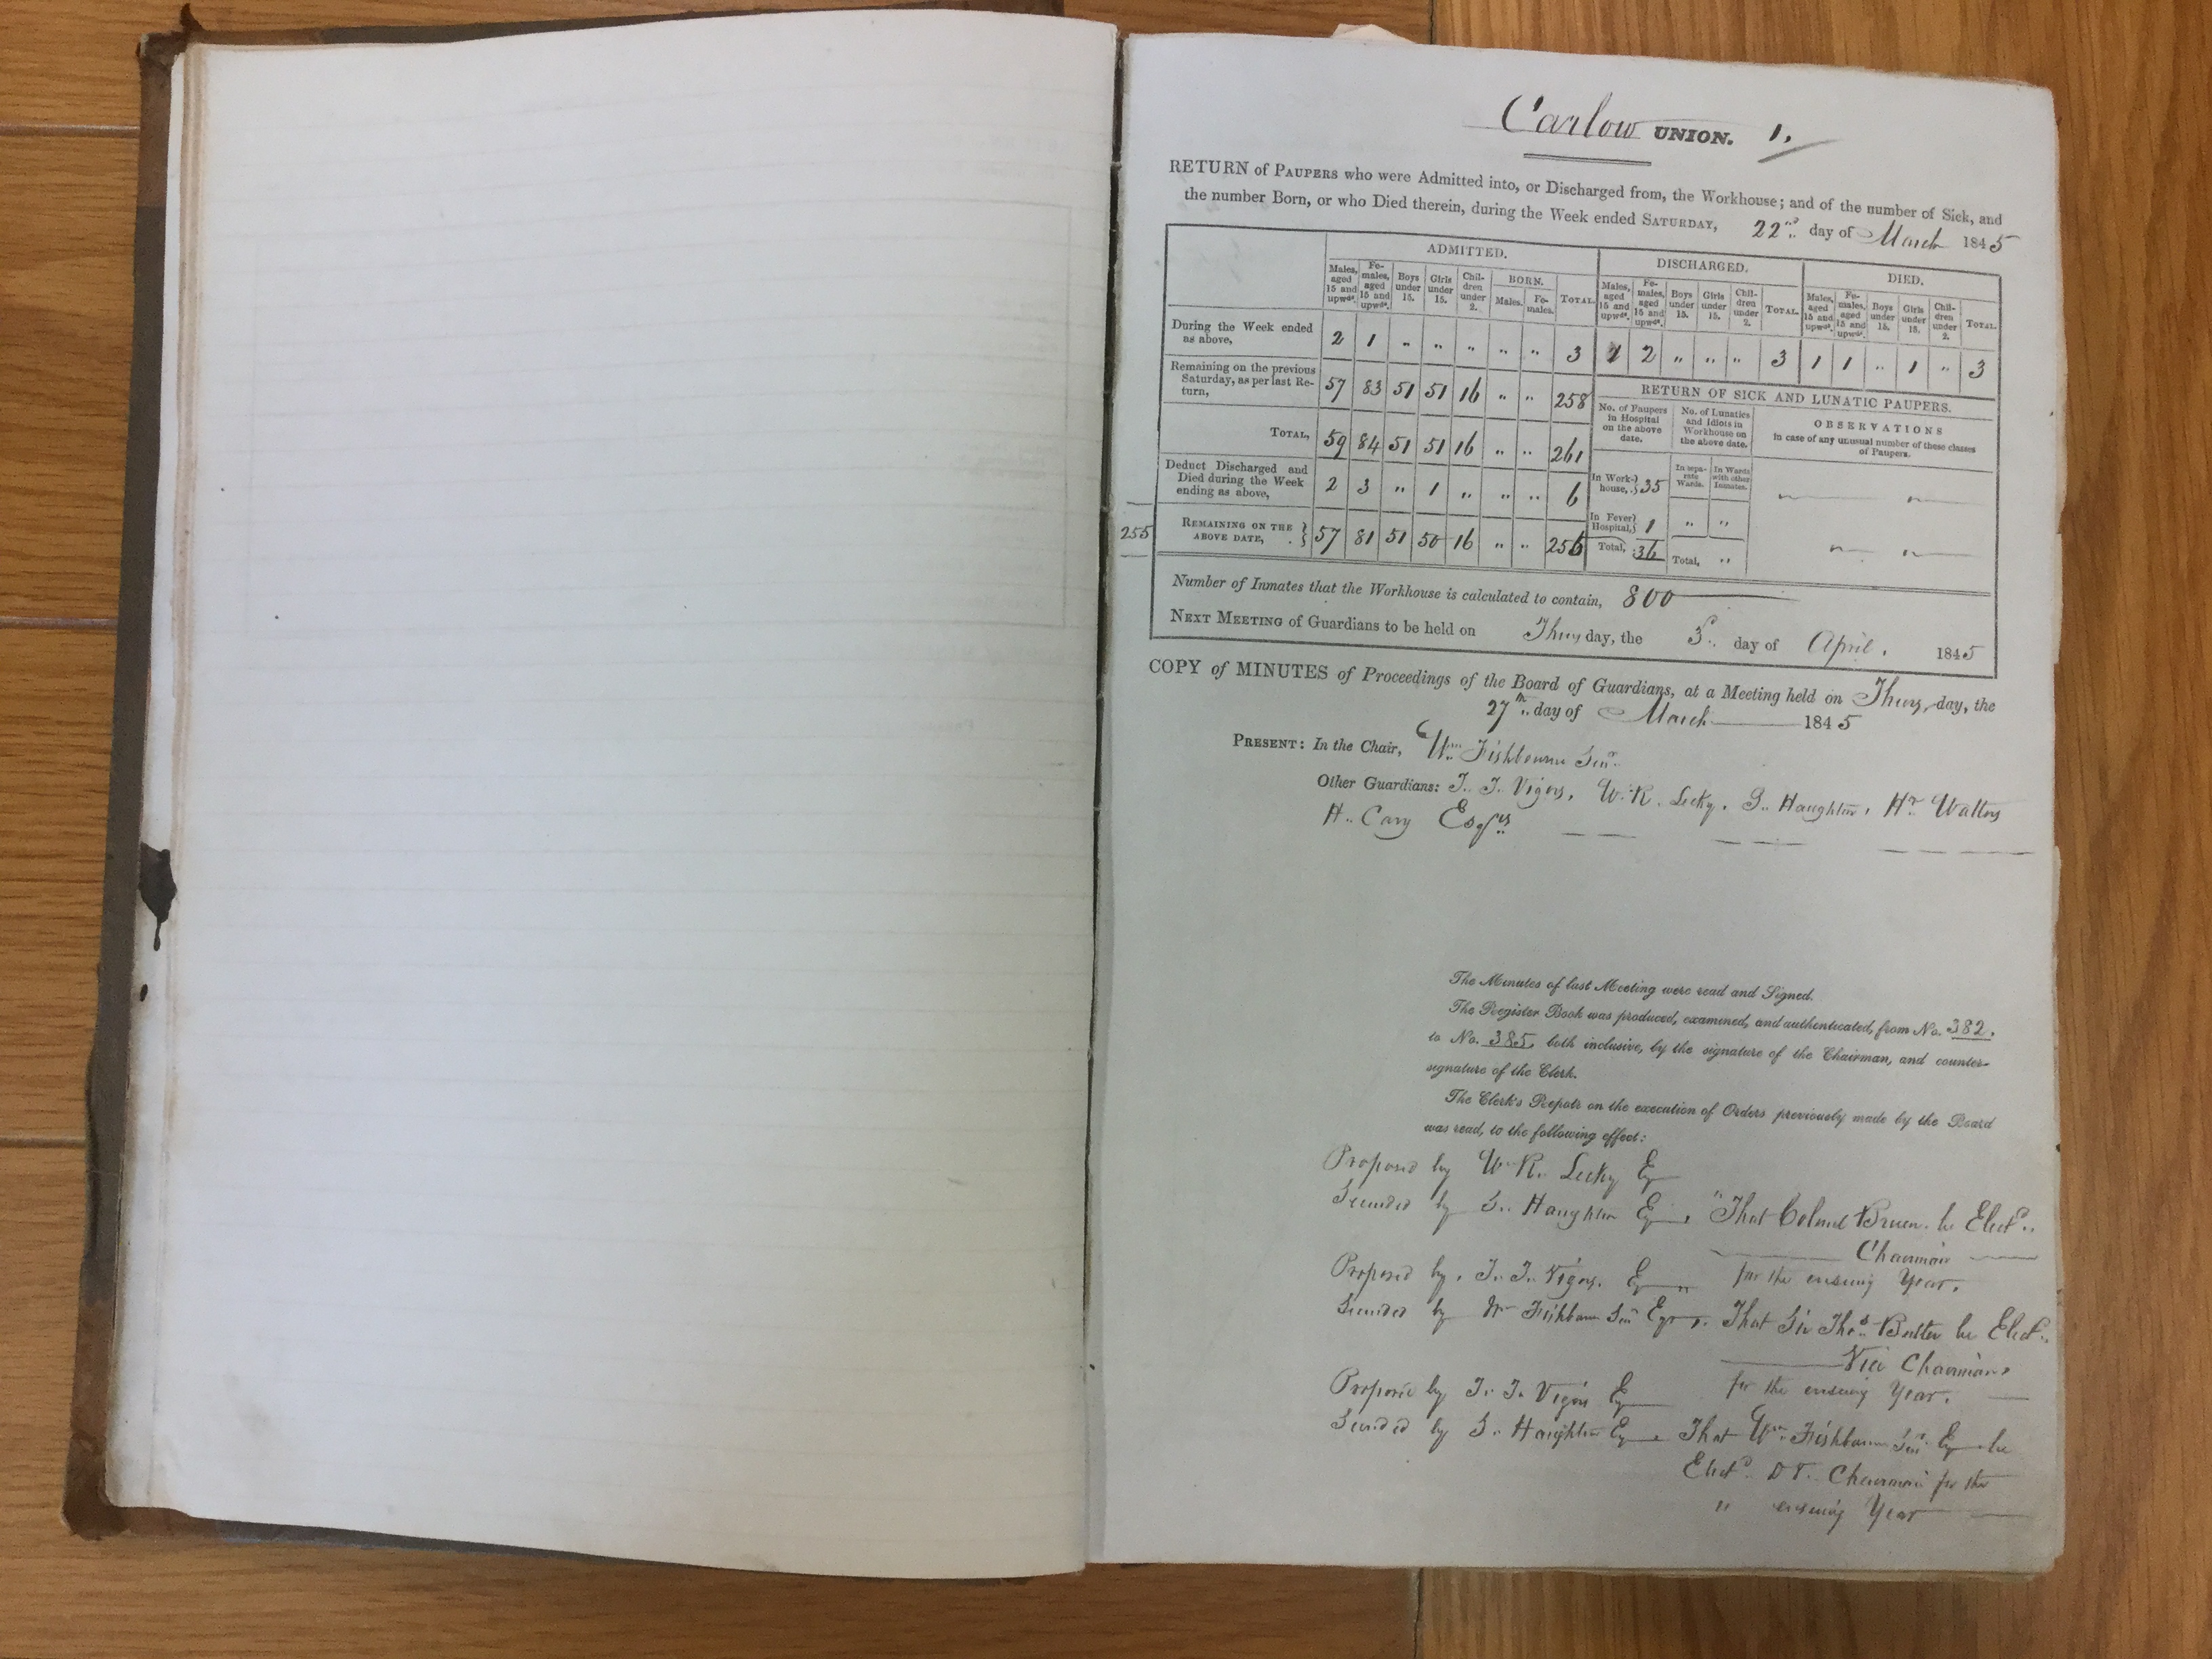 Carlow UNION. 1.
RETURN of PAUPERS who were Admitted into, or Discharged from, the Workhouse; and of the number of Sick, and
the number Born, or who Died therein, during the Week ended SATURDAY, 22nd day of March 1845
ADMITTED. DISCHARGED. DIED.
Males, aged 15 and upwds. Fe-males, aged 15 and upwds. Boys under 15. Girls under 15. Chil-dren under 2. BORN. Males. Fe-males. TOTAL. Males, aged 15 and upwds. Fe-males, aged 15 and upwds. Boys under 15. Girls under 15. Chil-dren under 2. TOTAL. Males, aged 15 and upwds. Fe-males, aged 15 and upwds. Boys under 15. Girls under 15. Chil-dren under 2. TOTAL.
During the Week ended as above, 2 1 " " " " " 3 1 2 " " " 3 1 1 " 1 " 3
Remaining on the previous Saturday, as per last Re-turn, 57 83 51 51 16 " " 258
RETURN OF SICK AND LUNATIC PAUPERS.
No. of Paupers in Hospital on the above date. No. of Lunatics and Idiots in Workhouse on the above date. OBSERVATIONS in case of any unusual number of these classes of Paupers.
TOTAL, 59 84 51 51 16 " " 261
Deduct Discharged and Died during the Week ending as above, 2 3 " 1 " " " 6
In Work-house, } 35 In sepa-rate Wards. In Wards with other Inmates.
In Fever Hospital, } 1 " "
255 REMAINING ON THE ABOVE DATE, } 57 81 51 50 16 " " 256 Total, 36 Total, "
Number of Inmates that the Workhouse is calculated to contain, 800
NEXT MEETING of Guardians to be held on Thursday, the 3. day of April. 1845
COPY of MINUTES of Proceedings of the Board of Guardians, at a Meeting held on Thursday, the
27th day of March 1845
PRESENT: In the Chair, Wm Fishbourne Senr.
Other Guardians: T. T. Vigors, W. R. Lecky, S. Haughton, Hy. Watters
H. Cary Esqrs
The Minutes of last Meeting were read and Signed.
The Register Book was produced, examined, and authenticated, from No. 382.
to No. 385, both inclusive, by the signature of the Chairman, and counter-
signature of the Clerk.
The Clerk's Report on the execution of Orders previously made by the Board
was read, to the following effect:
Proposed by W. R. Lecky Esq
Seconded by S. Haughton Esq, "That Colonel Bruen be Electd.
Chairman
for the ensuing Year.
Proposed by T. T. Vigors. Esq
Seconded by Wm Fishbourne Senr Esqr. That Sir Thos. Butler be Electd.
Vice Chairman
for the ensuing Year.
Proposed by T. T. Vigors Esq
Seconded by S. Haughton Esq. That Wm. Fishbourne Senr. Esq be
Electd. D V. Chairman for the
" ensuing Year